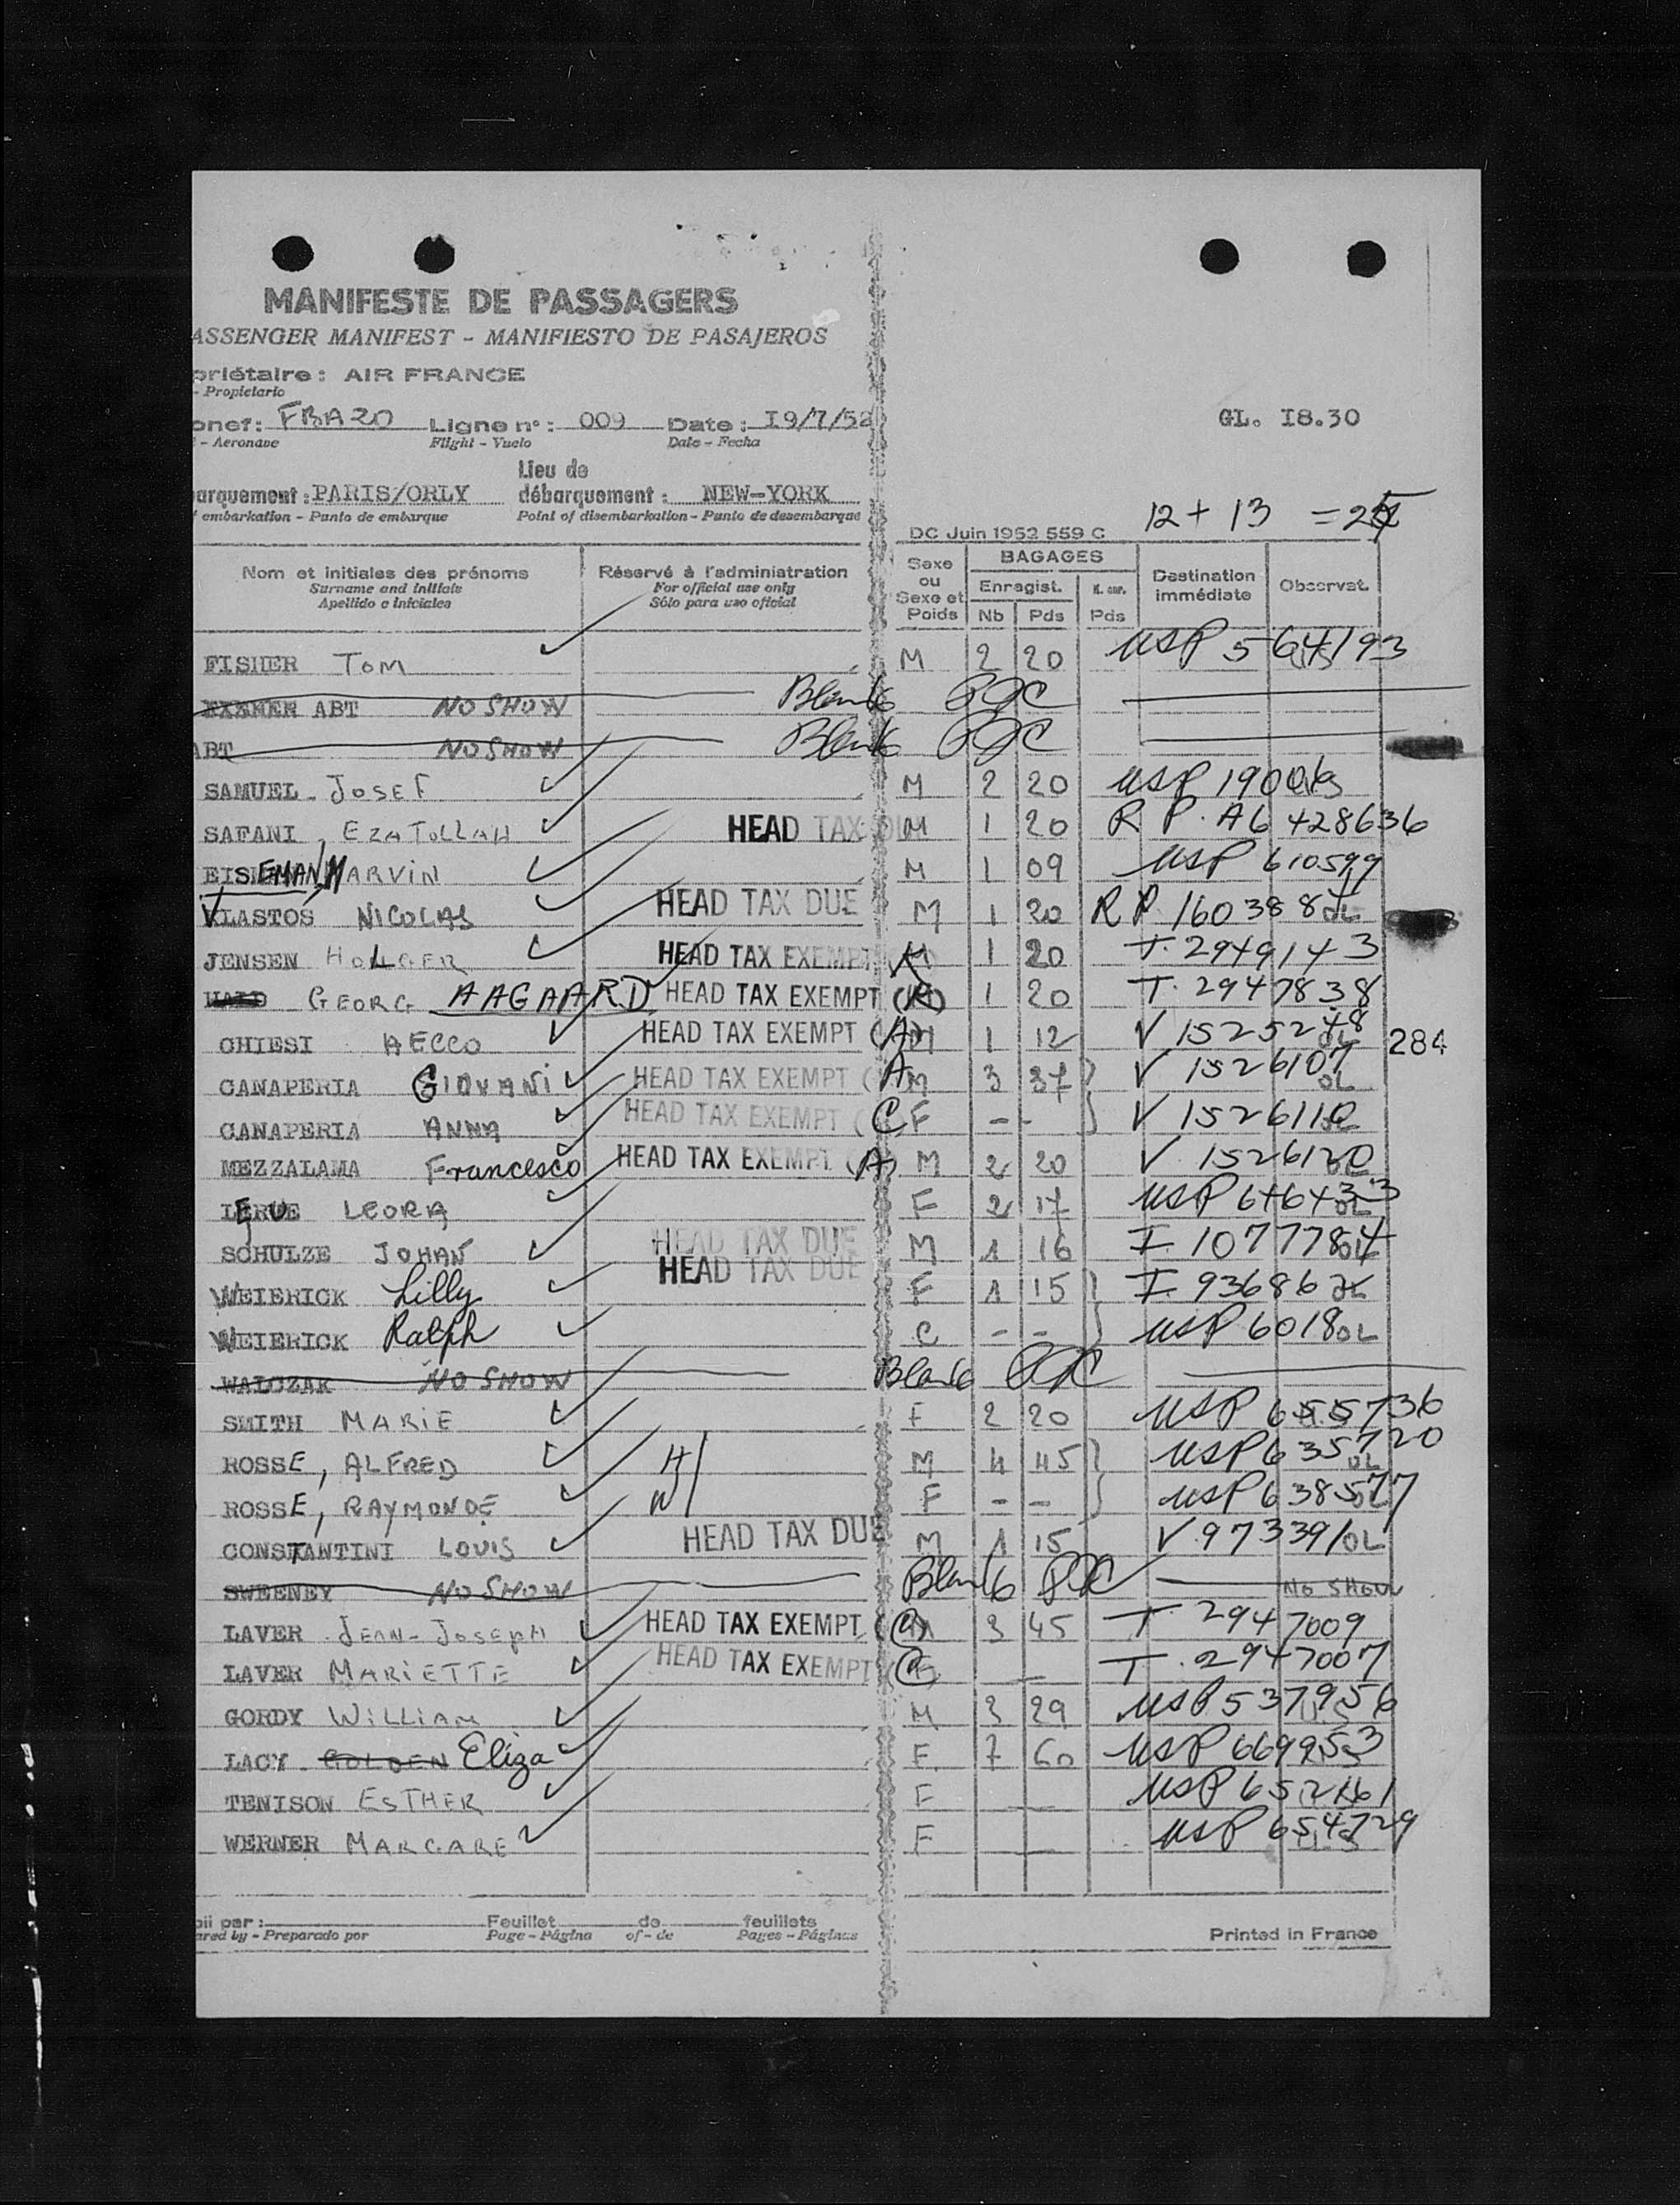 MANIFESTE DE PASSAGERS
ASSENGER MANIFEST - MANIFIESTO DE PASAJEROS
priétaire : AIR FRANCE
- Propietario
onef : FBAZO Ligne n° : 009 Date : I9/7/52
- Aeronave Flight - Vuelo Date - Fecha
GL. I8.30
Lieu de
arquement : PARIS/ORLY débarquement : NEW-YORK
f embarkation - Punto de embarque Point of disembarkation - Punto de desembarque
12 + 13 = 25
DC Juin 1952 559 C
Nom et initiales des prénoms Réservé à l'administration Sexe ou Sexe et Poids BAGAGES Destination immédiate Observat.
Surname and initials For official use only Enregist. K. cor.
Apellido e iniciales Sólo para uso oficial Nb Pds Pds
FISHER TOM M 2 20 USP 564193
ABT NO SHOW Blank
ABT NO SHOW Blank
SAMUEL JOSEF M 2 20 USP
SAFANI, EZATOLLAH HEAD TAX M 1 20 R P. A6 428636
EISEMAN, MARVIN M 1 09 USP 610599
VLASTOS NICOLAS HEAD TAX DUE M 1 20 R P. 1603884 OL
JENSEN HOLGER HEAD TAX EXEMPT M 1 20 T. 2949143
GEORG AAGAARD HEAD TAX EXEMPT (A) 1 20 T. 2947838
CHIESI AECCO HEAD TAX EXEMPT (A) M 1 12 V 1525248 OL
284
CANAPERIA GIOVANI HEAD TAX EXEMPT (A M 3 37 } V 1526107 OL
CANAPERIA ANNA HEAD TAX EXEMPT (C F - - } V 1526110
MEZZALAMA Francesco HEAD TAX EXEMPT (A) M 2 20 V. 1526120
LEORA F 2 17 USP 646433 OL
SCHULZE JOHAN HEAD TAX DUE M 1 16 I. 1077784 OL
WEIERICK Lilly HEAD TAX DUE F 1 15 } I. 93686 OL
WEIERICK Ralph C - - } USP 6018 OL
WALCZAK NO SHOW Blank
SMITH MARIE F 2 20 USP 655736
ROSSE, ALFRED H/ M 4 45 } USP 635720 OL
ROSSE, RAYMONDE W/ F - - } USP 638577 OL
CONSTANTINI LOUIS HEAD TAX DUE M 1 15 V 973391 OL
SWEENEY NO SHOW Blank NO SHOW
LAVER JEAN-JOSEPH HEAD TAX EXEMPT (C) M 3 45 T. 2947009
LAVER MARIETTE HEAD TAX EXEMPT (C) — T. 2947007
GORDY WILLIAM M 3 29 USP 537956
LACY GOLDEN Eliza F. 7 60 USP 669953
TENISON ESTHER F — USP 652161
WERNER MARGARE F — USP 654729
bli par : Feuillet de feuillets
ared by - Preparado por Page - Página of - de Pages - Páginas
Printed in France